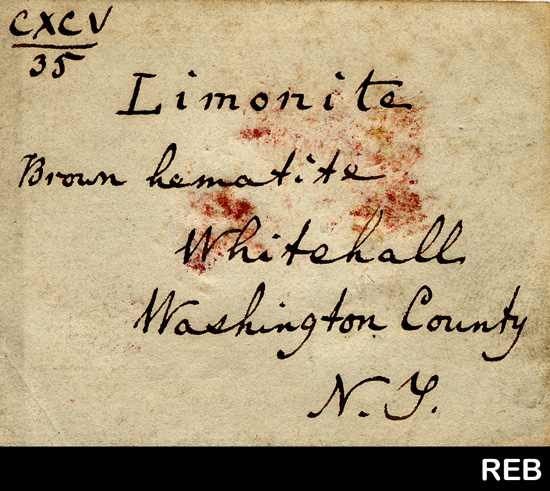 CXCV
35
Limonite
Brown hematite
Whitehall
Washington County
N. Y.
REB